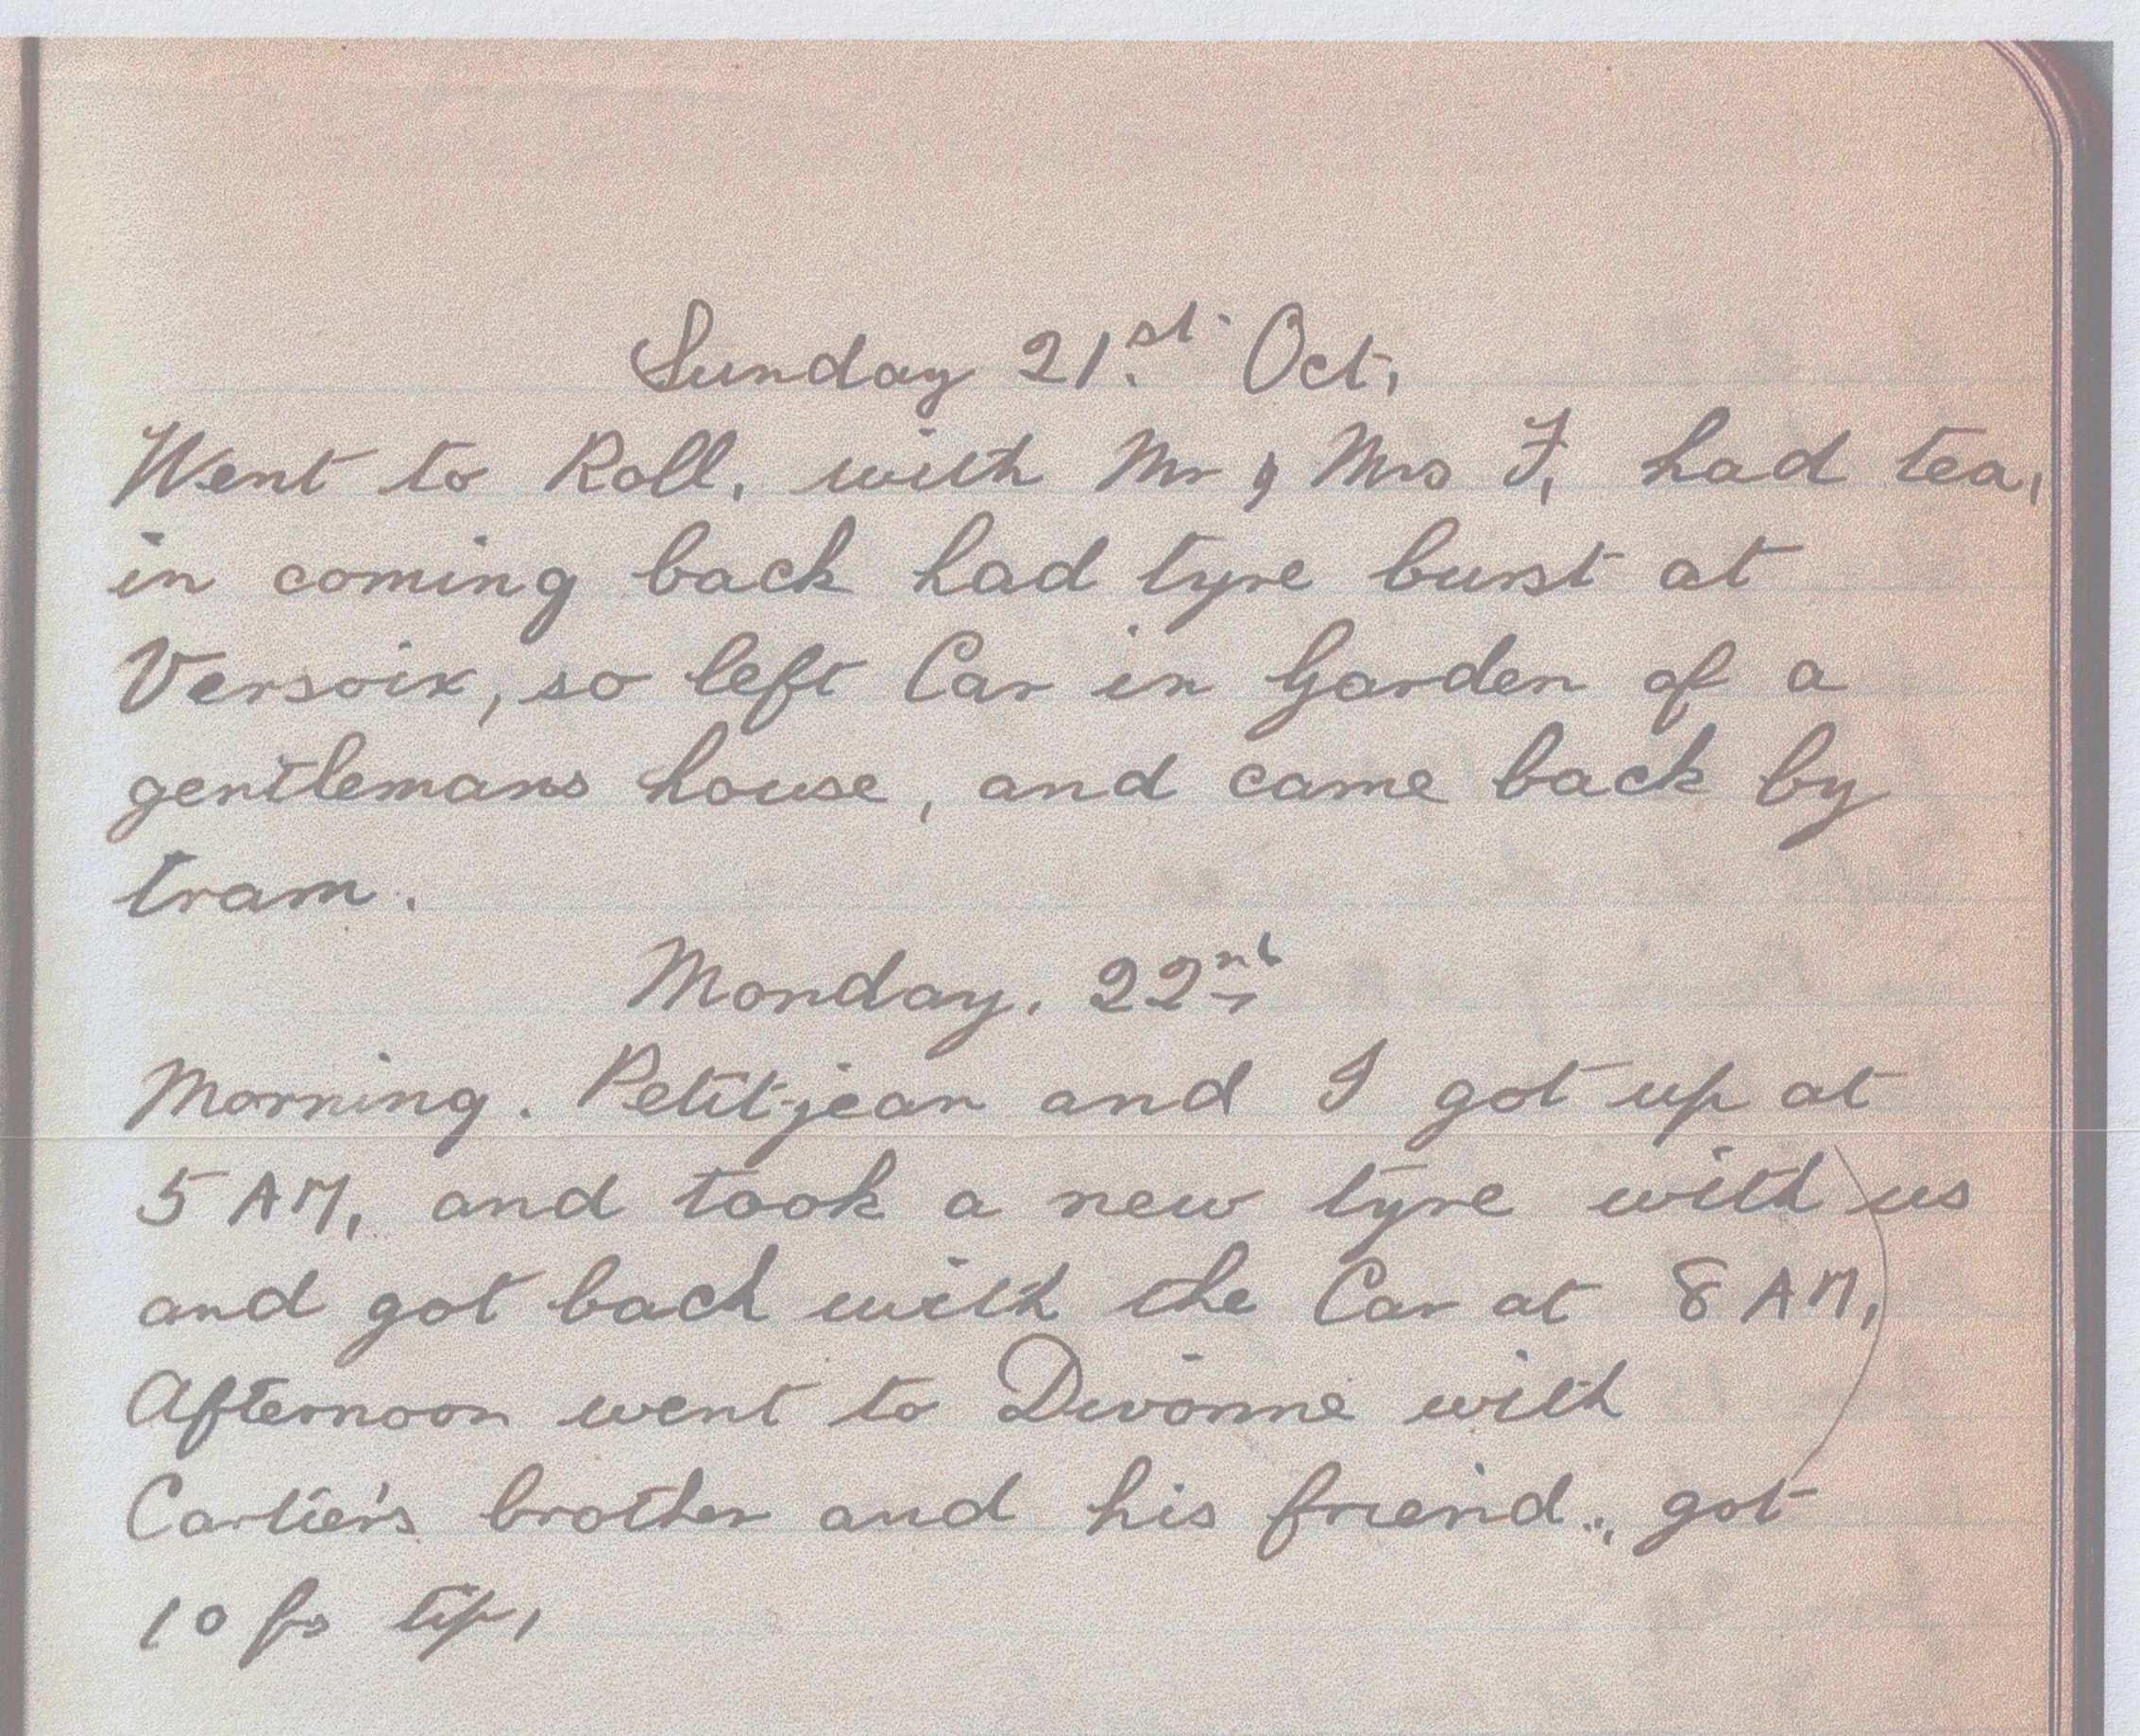 Sunday 21st Oct,
Went to Roll, with Mr & Mrs F, had tea,
in coming back had tyre burst at
Versoix, so left Car in Garden of a
gentlemans house, and came back by
tram.
Monday, 22nd
Morning. Petit-jean and I got up at
5 AM, and took a new tyre with us
and got back with the Car at 8 AM,
Afternoon went to Divonne with
Cartier's brother and his friend., got
10 fs tip,